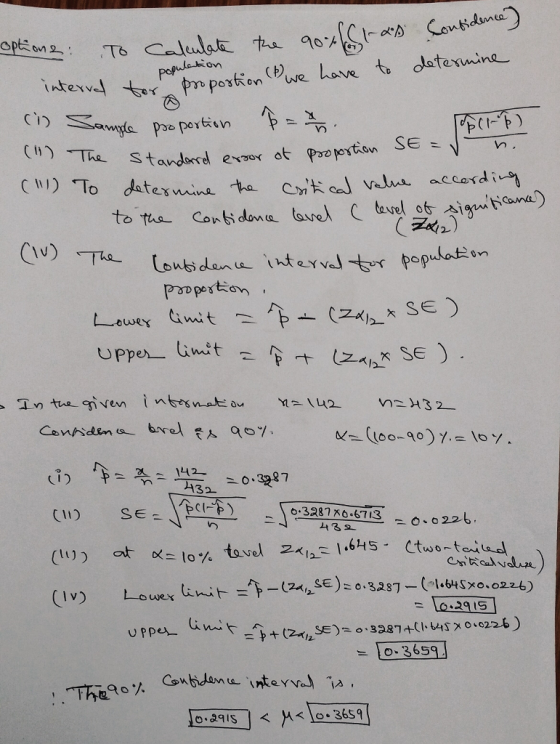 option 2: To Calculate the 90% (or) (1-α)% Confidence)
interval for population proportion (p) we have to determine
(i) Sample proportion p̂ = x/n.
(ii) The Standard error of proportion SE = √(p̂(1-p̂)/n).
(iii) To determine the critical value according
to the Confidence level (level of significance)
(Zα/2)
(iv) The Confidence interval for population
proportion.
Lower limit = p̂ - (Zα/2 × SE)
Upper limit = p̂ + (Zα/2 × SE).
In the given information x=142 n=432
Confidence level is 90%. α=(100-90)%=10%.
(i) p̂ = x/n = 142/432 = 0.3287
(ii) SE = √(p̂(1-p̂)/n) = √(0.3287×0.6713/432) = 0.0226.
(iii) at α=10% level Zα/2 = 1.645 - (two-tailed
critical value)
(iv) Lower limit = p̂-(Zα/2 SE) = 0.3287-(1.645×0.0226)
= 0.2915
upper limit = p̂+(Zα/2 SE) = 0.3287+(1.645×0.0226)
= 0.3659
∴ The 90% Confidence interval is,
0.2915 < μ < 0.3659